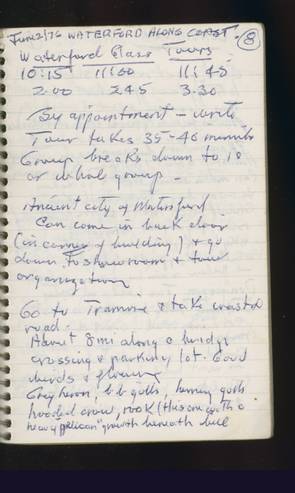 June 21/76 WATERFORD ALONG COAST. 8
Waterford Glass Tours
10:15 11:00 11:45
2:00 2.45 3.30
By appointment - write
Tour takes 35-40 minutes
Group breaks down to 10
or whole group.
Ancient city of Waterford
Can come in back door
(in corner of building) & go
down to showroom & tour
organization
Go to Tramore & take coastal
road.
About 8 mi along a bridge
crossing & parking lot. Good
birds & flowers
Grey heron, b.b. gulls, herring gulls
hooded crow, rook (this one with a
heavy "pelican" growth beneath bill